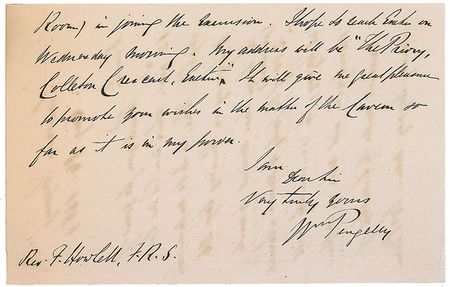 Room) in joining the Excursion. I hope to reach Exeter on
Wednesday morning. My address will be "The Priory,
Colleton Crescent, Exeter". It will give me great pleasure
to promote your wishes in the matter of the Cavern so
far as it is in my power.
I am
Dear Sir
Very truly yours
Wm Pengelly
Rev. F. Howlett, F.R.S.